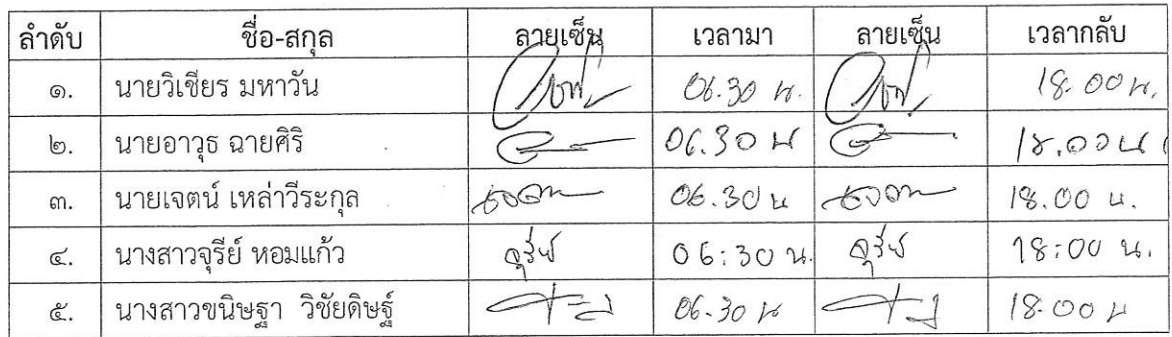 ลำดับ ชื่อ-สกุล ลายเซ็น เวลามา ลายเซ็น เวลากลับ
๑. นายวิเชียร มหาวัน 06.30 น. 18.00 น.
๒. นายอาวุธ ฉายศิริ 06.30 น 18.00 น
๓. นายเจตน์ เหล่าวีระกุล 06.30 น 18.00 น.
๔. นางสาวจุรีย์ หอมแก้ว จุรีย์ 06:30 น. จุรีย์ 18:00 น.
๕. นางสาวขนิษฐา วิชัยดิษฐ์ 06.30 น 18.00 น